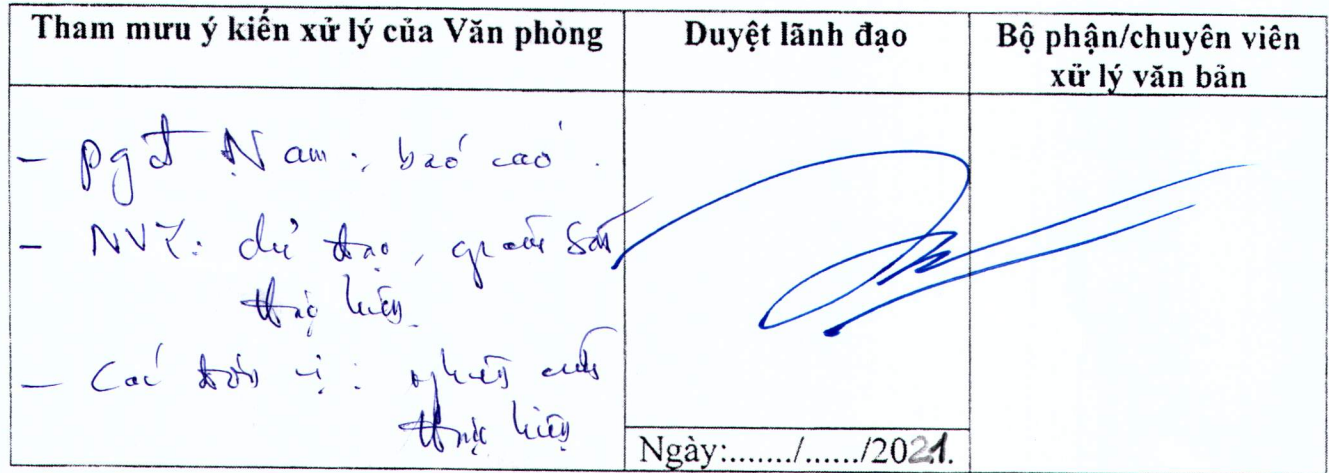 Tham mưu ý kiến xử lý của Văn phòng
Duyệt lãnh đạo
Bộ phận/chuyên viên
xử lý văn bản
- Pgđ Nam: báo cáo.
- NVY: chỉ đạo, giám sát
thực hiện
- Các đơn vị: nghiên cứu
thực hiện
Ngày:......./....../2021.